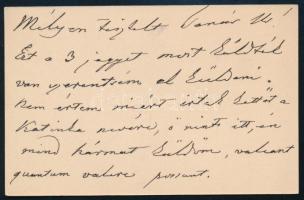 Mélyen tisztelt Tanár Úr!
Ezt a 3 jegyet mert küldték
van szerencsém el küldeni.
Nem értem miért írtak kettőt a
Katinka nevére, ő nincs itt, én
mind hármat küldöm, valeant
quantum valere possunt.